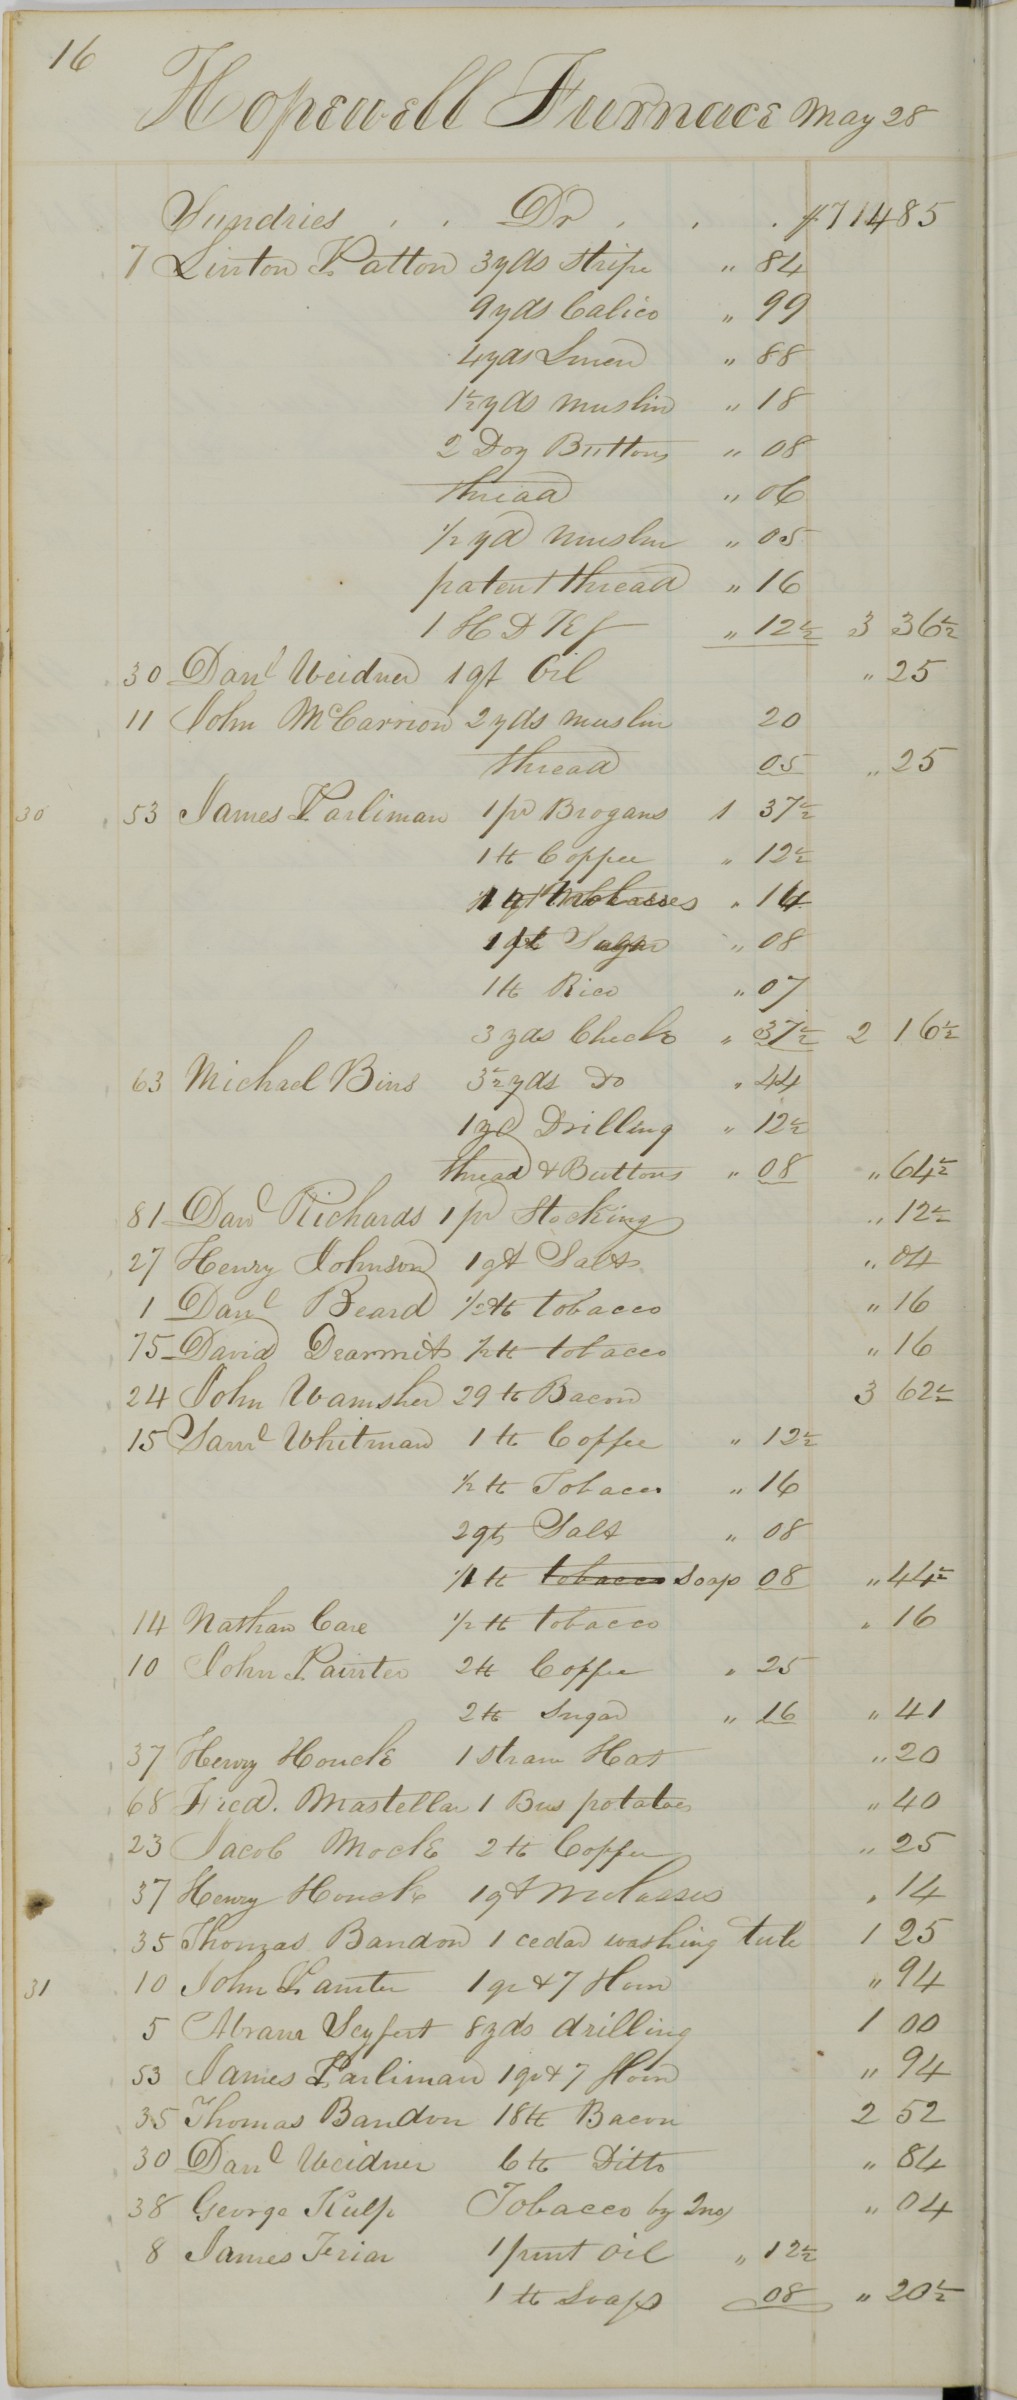 16
Hopewell Furnace May 28
Sundries . . Dr . . . $714 85
7 Linton Patton 3 yds Stripe " 84
9 yds Calico " 99
4 yds Linen " 88
1½ yds muslin " 18
2 Doz Buttons " 08
thread " 06
1/2 yd muslin " 05
patent thread " 16
1 H D Kf " 12½ 3 36½
30 Danl Weidner 1 qt Oil " 25
11 John McCarrion 2 yds muslin 20
thread 05 " 25
30 53 James Parliman 1 pr Brogans 1 37½
1 lb Coffee " 12½
1 qt Molasses " 14
1 lb Sugar " 08
1 lb Rice " 07
3 yds Check " 37½ 2 16½
63 Michael Bins 3½ yds Do " 44
1 yd Drilling " 12½
thread & Buttons " 08 " 64½
81 Danl Richards 1 pr Stocking " 12½
27 Henry Johnson 1 qt Salts " 04
1 Danl Beard 1/2 lb tobacco " 16
75 David Dearmit 1/2 lb tobacco " 16
24 John Wamsher 29 lb Bacon 3 62½
15 Saml Whitman 1 lb Coffee " 12½
1/2 lb Tobacco " 16
2 qts Salt " 08
1 lb tobacco Soap 08 " 44½
14 Nathan Care 1/2 lb tobacco " 16
10 John Painter 2 lb Coffee " 25
2 lb Sugar " 16 " 41
37 Henry Houck 1 Straw Hat " 20
68 Fred. Mastellar 1 Bus potatoes " 40
23 Jacob Mock 2 lb Coffee " 25
37 Henry Houck 1 qt Molasses " 14
35 Thomas Bandon 1 cedar washing tub 1 25
31 10 John Painter 1 qr & 7 flour " 94
5 Abram Seyfert 8 yds drilling 1 00
53 James Parliman 1 qr & 7 flour " 94
35 Thomas Bandon 18 lb Bacon 2 52
30 Danl Weidner 6 lb Ditto " 84
38 George Kulp Tobacco by " 04
8 James Friar 1 pint Oil " 12½
1 lb Soap 08 " 20½